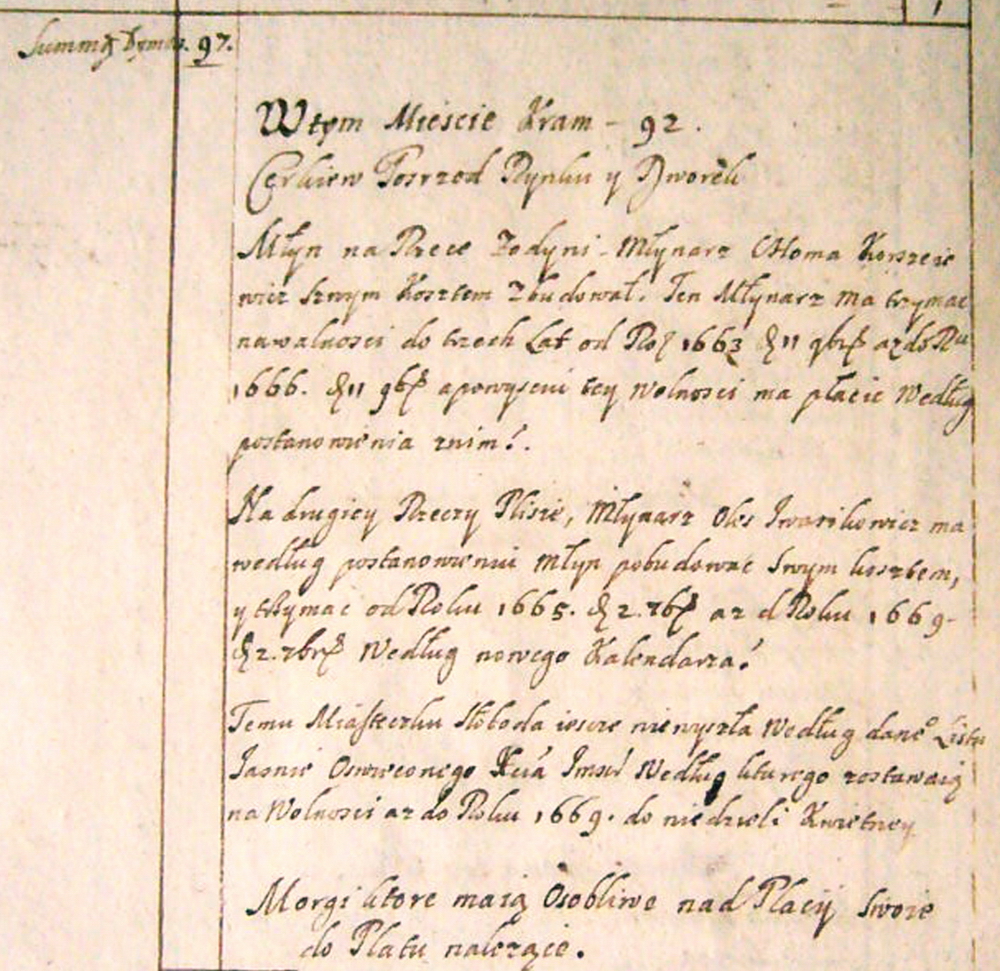 Summą Dymów. 97.
W tym Miescie Kram - 92.
Cerkiew Posrzod Rynku y Dworek
Młyn na Rzece Żodyni - Młynarz Choma Korzeie
wicz swym Kosztem Zbudował. Ten Młynarz ma trzymac
nawolnosci do trzech Lat od 1663 11 9br aż do Ru
1666. 11 9br apowysciu tey Wolnosci ma płacic Według
postanowienia znim.
Na drugiey Rzeczy Plisie, Młynarz Oles Iwasikowicz ma
według postanowieniu młyn pobudowac swym kosztem,
y trzymac od Roku 1665. 2. 7br az d Roku 1669.
2. 7br Według nowego Kalendarza.
Temu Miasteczku Słoboda iescze niewyszła Według dane Listu
Jasnie Oswieconego Xcia Imsci Według kturego zostawaią
na Wolnosci az do Roku 1669. do niedzieli Kwietney
Morgi ktore maią Osobliwe nad Placy swoie
do Płatu należące.